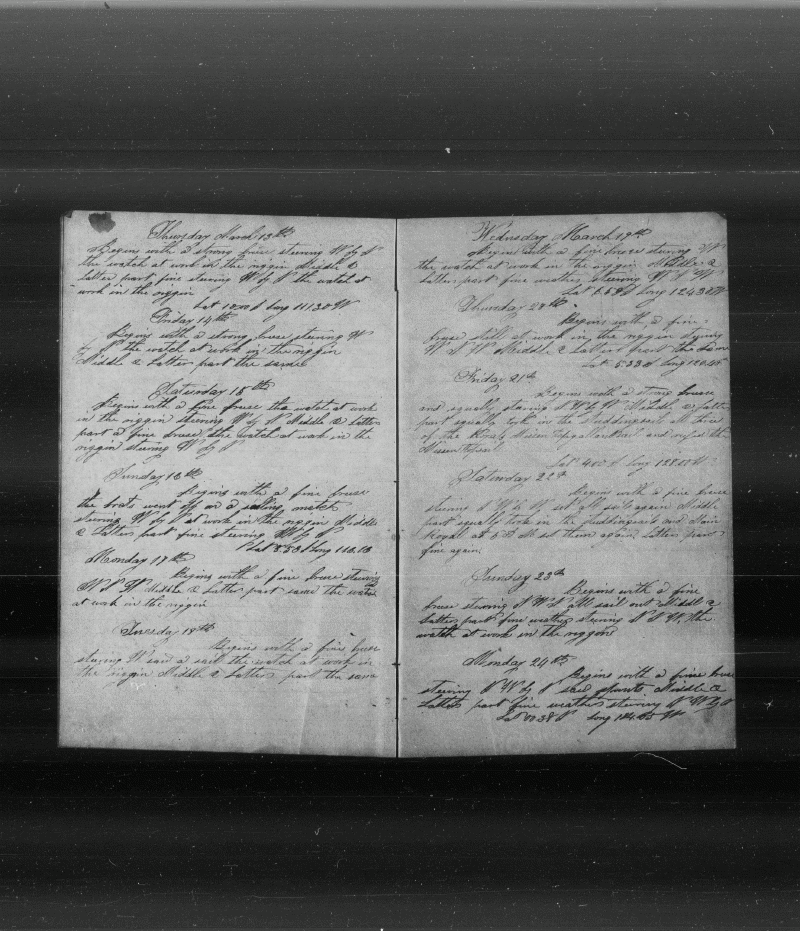 Thursday March 13th
Begins with a strong breese steering W by N
the watch at work in the riggin Middle &
Latter part fine steering W by N the watch at
work in the riggin
Lat 10.00 S Long 111.30 W
Friday 14th
Begins with a strong breese steering W
by N the watch at work in the riggin
Middle & Latter part the same
Saturday 15th
Begins with a fine breese the watch at work
in the riggin steering W by N Middle & Latter
part a fine breese the watch at work in the
riggin steering W by N
Sunday 16th
Begins with a fine breese
the boats went off on a sailing match
steering W by N at work in the riggin Middle
& Latter part fine steering W by N
Lat 8.50 S Long 118.10
Monday 17th
Begins with a fine breese steering
W N W Middle & Latter part same the watch
at work in the riggin
Tuesday 18th
Begins with a fine breese
steering W saw a sail the watch at work in
the riggin Middle & Latter part the same
Wednesday March 19th
Begins with a fine breese steering
the watch at work in the riggin Middle &
Latter part fine weather steering W N W
Lat 6.59 S Long 124.30 W
Thursday 20th
Begins with a fine
breese still at work in the riggin steering
W N W Middle & Latter part the same
Lat 5.33 Long 126.45
Friday 21st
Begins with a strong breese
and squally steering N W by W Middle & Latter
part squally took in the studdingsails all three
of the Royals Mizen topgallantsail and
Mizen topsail
Lat 4.00 S Long 128.00 W
Saturday 22nd
Begins with a fine breese
steering N W by W set all sail again Middle
part squally took in the studdingsails and Main
Royal at 5 A M set them again Latter part
fine again
Sunday 23rd
Begins with a fine
breese steering N W all sail out Middle &
Latter part fine weather steering N W the
watch at work in the riggin
Monday 24th
Begins with a fine breese
steering N W by N saw Middle &
Latter part fine weather steering N W by N
Lat 00.38 N Long W